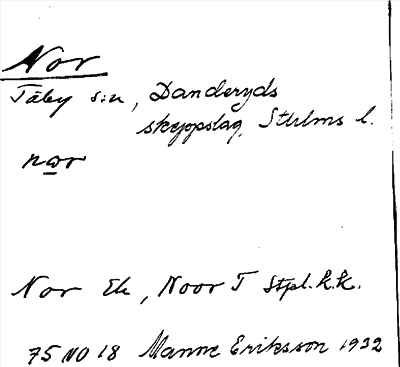 Nor
Täby s:n, Danderyds
skeppslag, Sthlms l.
nor
Nor Ek, Noor T Stpl.k.k.
75 NO 18 Manne Eriksson 1932